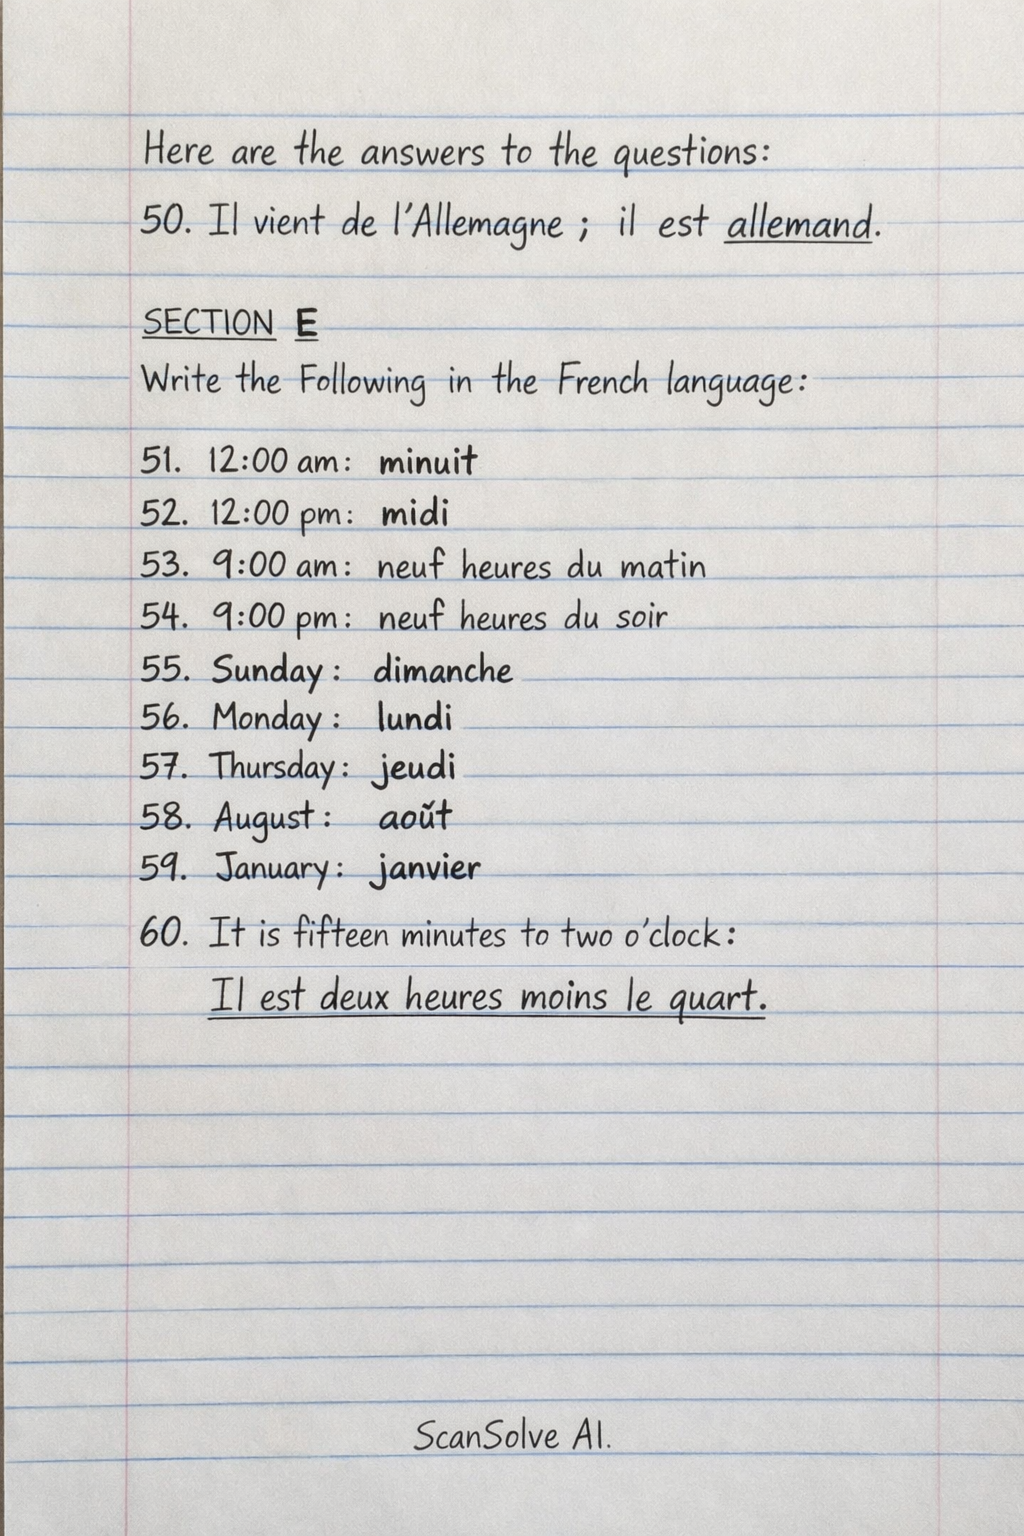 Here are the answers to the questions:
50. Il vient de l'Allemagne ; il est allemand.
SECTION E
Write the Following in the French language:
51. 12:00 am: minuit
52. 12:00 pm: midi
53. 9:00 am: neuf heures du matin
54. 9:00 pm: neuf heures du soir
55. Sunday: dimanche
56. Monday: lundi
57. Thursday: jeudi
58. August: aoŭt
59. January: janvier
60. It is fifteen minutes to two o'clock:
Il est deux heures moins le quart.
ScanSolve AI.